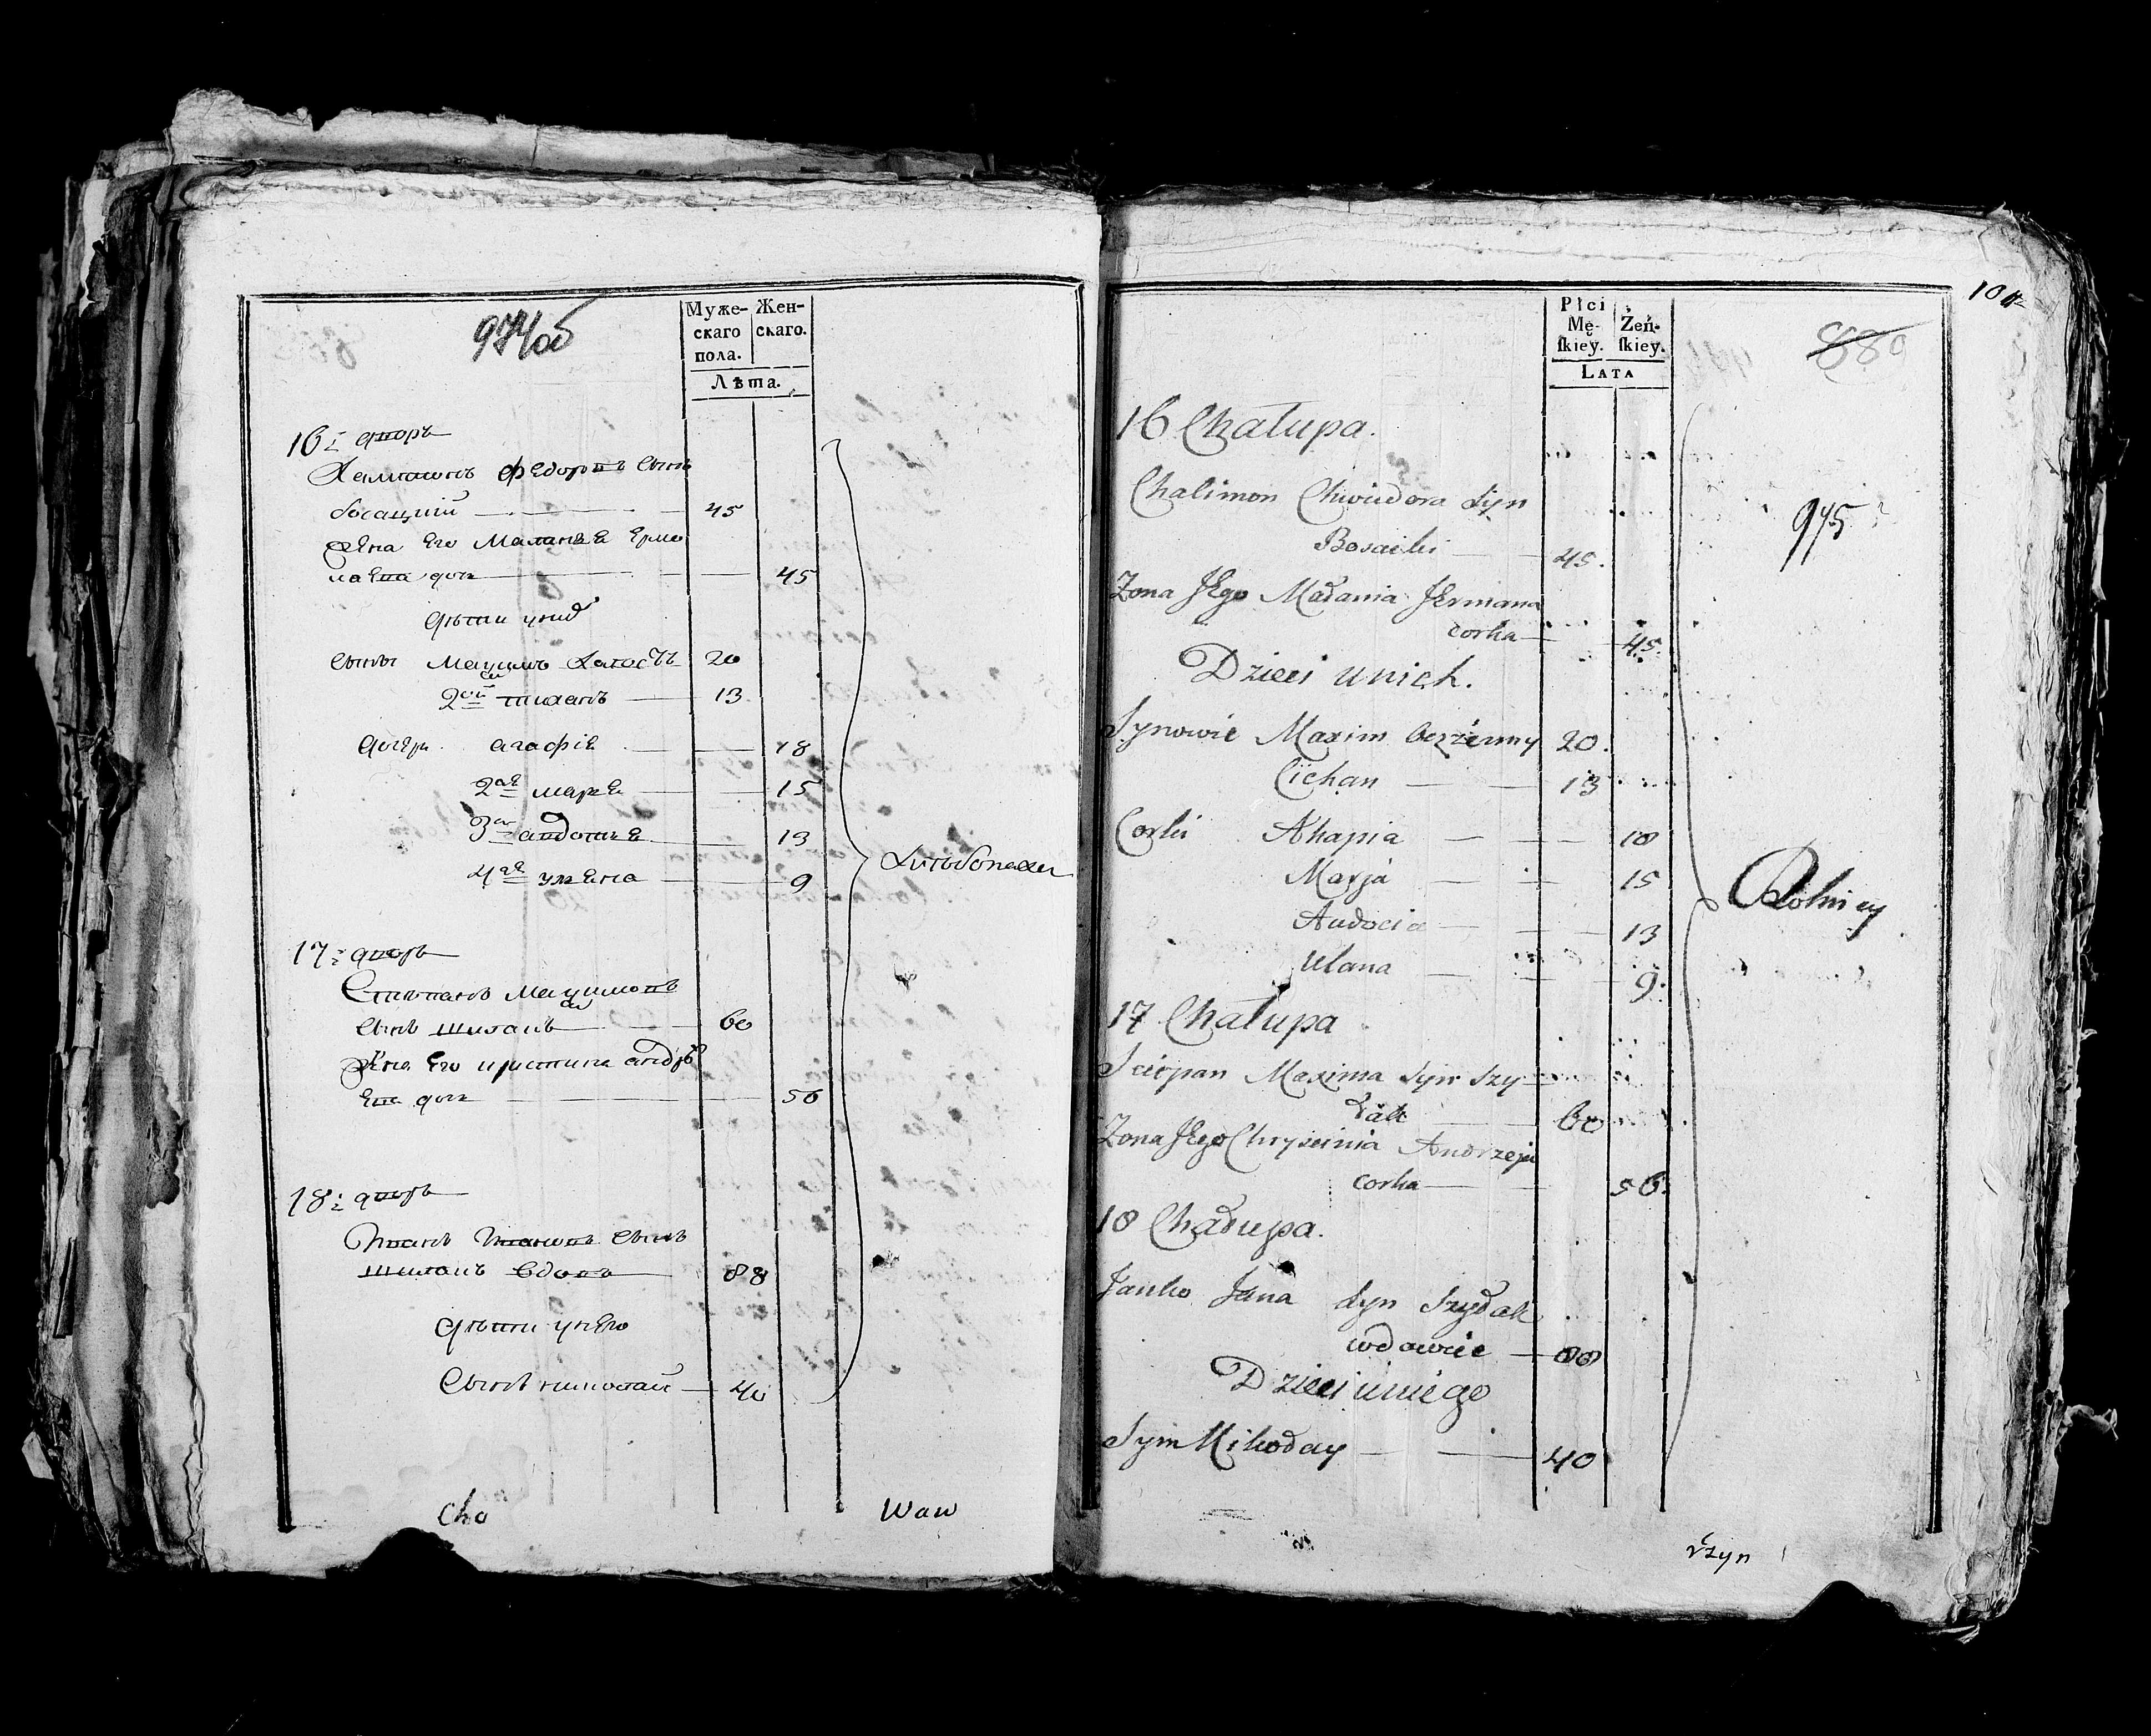 974об
Муже- Жен-
скаго скаго.
пола.
Лѣта.
16й дворъ
Халимонъ Федоровъ сынъ
босацкий 45
Жена его Маланья Ермо
лаева дочь 45
дѣти у них
сыны Мацимъ холостъ 20
2ой тиханъ 13
дочери агафія 18
2ая маря 15
3ая авдотья 13
4ая ульяна 9
Хлѣбопашцы
17й дворъ
Степанъ Мацимовъ
сынъ шилакъ 60
Жена Его кристина андрѣ
ева дочь 56
18й дворъ
Иванъ Ивановъ сынъ
шилакъ вдовъ 88
дѣти у него
сынъ николай 40
Cho Waw
Płci
Mę- Żeń-
ſkiey. ſkiey.
LATA
880
975
16 Chałupa.
Chalimon Chwiedora Syn
Bosacki 45.
Zona Jego Małania Jermana
corka 45.
Dzieci u nich.
Synowie Maxim bezżenny 20.
Cichan 13
Corki Ahapia 18
Marja 15
Audocia 13
Ulana 9.
Rolnicy
17 Chałupa
Sciepan Maxima Syn Szy
łak 60
Zona Jego Chryscinia Andrzeja
corka 56.
18 Chałupa.
Janko Jana Syn Szyłak
wdowiec 88
Dzieci u niego
Syn Mikołay 40